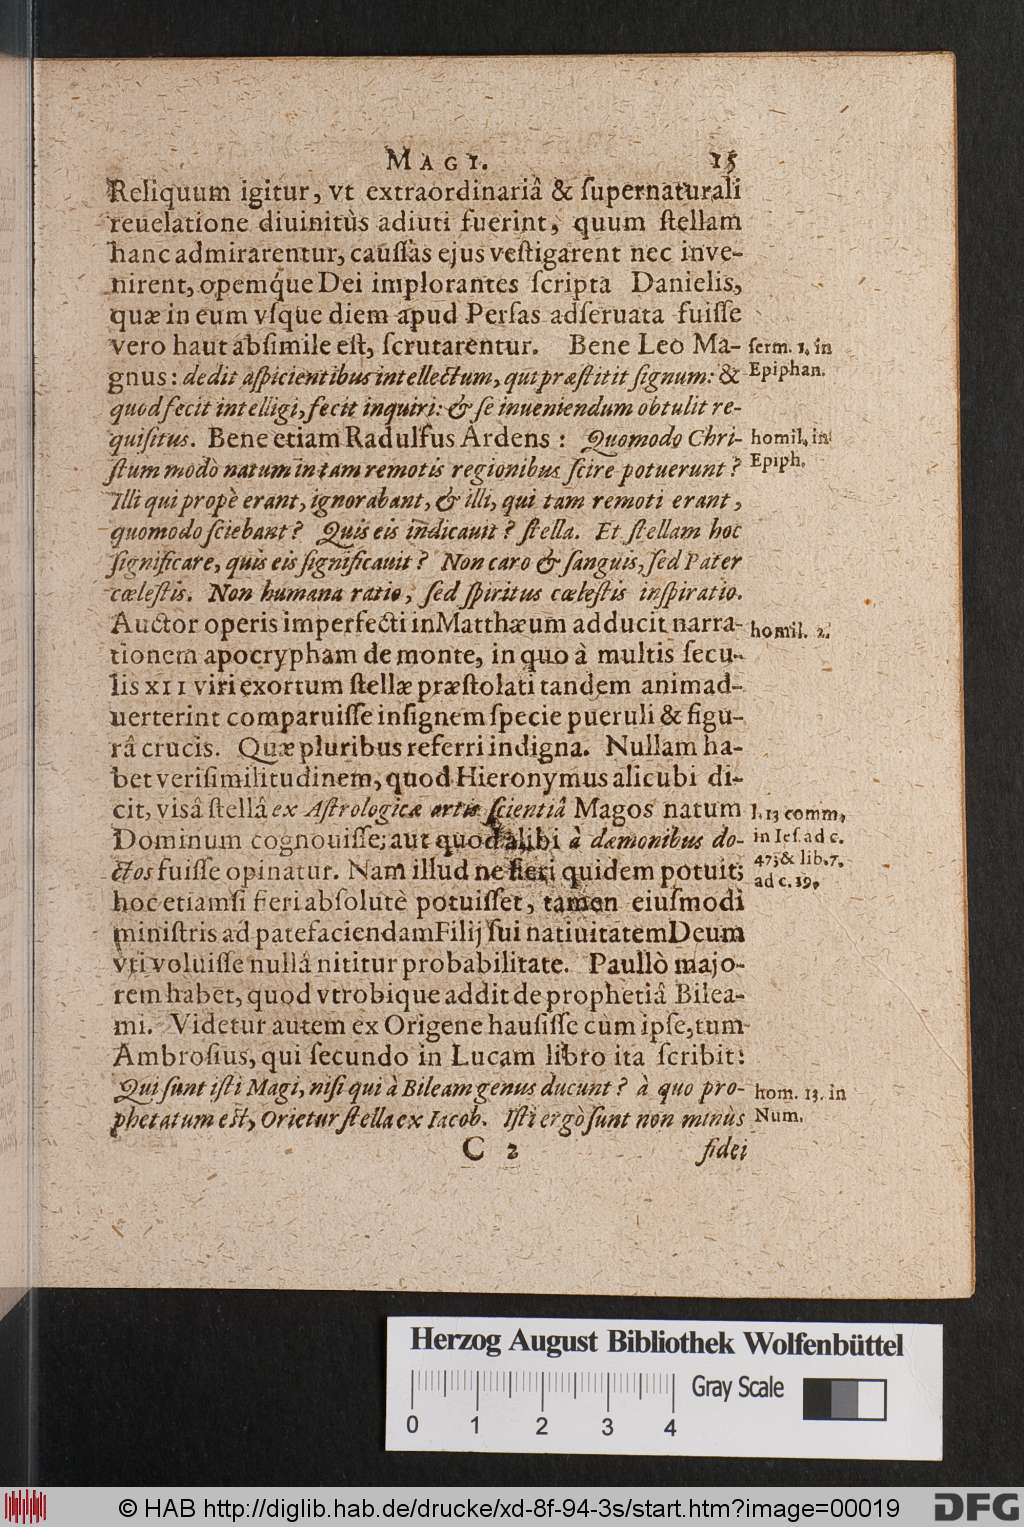 MAGI. 15
Reliquum igitur, vt extraordinariâ & ſupernaturali
reuelatione diuinitùs adiuti fuerint, quum ſtellam
hanc admirarentur, cauſſas ejus veſtigarent nec inve-
nirent, opemq́ue Dei implorantes ſcripta Danielis,
quæ in eum vſque diem apud Perſas adſeruata fuiſſe
vero haut abſimile eſt, ſcrutarentur. Bene Leo Ma-
ſerm. 1. in
gnus: dedit aſpicientibus intellectum, qui præſtitit ſignum: &
Epiphan.
quod fecit intelligi, fecit inquiri: & ſe inueniendum obtulit re-
quiſitus. Bene etiam Radulfus Ardens: Quomodo Chri-
homil. in
ſtum modò natum in tam remotis regionibus ſcire potuerunt?
Epiph.
Illi qui propè erant, ignorabant, & illi, qui tam remoti erant,
quomodo ſciebant? Quis eis indicauit? ſtella. Et ſtellam hoc
ſignificare, quis eis ſignificauit? Non caro & ſanguis, ſed Pater
cœleſtis. Non humana ratio, ſed ſpiritus cœleſtis inſpiratio.
Auctor operis imperfecti in Matthæum adducit narra-
homil. 2.
tionem apocrypham de monte, in quo à multis ſecu-
lis XII viri exortum ſtellæ præſtolati tandem animad-
uerterint comparuiſſe inſignem ſpecie pueruli & figu-
râ crucis. Quæ pluribus referri indigna. Nullam ha-
bet veriſimilitudinem, quod Hieronymus alicubi di-
cit, visâ ſtellâ ex Aſtrologicæ artis ſcientiâ Magos natum
l. 13 comm.
Dominum cognouiſſe; aut quod alibi à dæmonibus do-
in Ieſ. ad c.
ctos fuiſſe opinatur. Nam illud ne fieri quidem potuit;
47; & lib. 7.
ad c. 19.
hoc etiamſi fieri abſolutè potuiſſet, tamen eiuſmodi
miniſtris ad patefaciendam Filij ſui natiuitatem Deum
vti voluiſſe nullâ nititur probabilitate. Paullò majo-
rem habet, quod vtrobique addit de prophetiâ Bilea-
mi. Videtur autem ex Origene hauſiſſe cùm ipſe, tum
Ambroſius, qui ſecundo in Lucam libro ita ſcribit:
Qui ſunt iſti Magi, niſi qui à Bileam genus ducunt? à quo pro-
hom. 13. in
phetatum eſt, Orietur ſtella ex Iacob. Iſti ergò ſunt non minùs
Num.
C 2 fidei
Herzog August Bibliothek Wolfenbüttel
Gray Scale
0 1 2 3 4
© HAB http://diglib.hab.de/drucke/xd-8f-94-3s/start.htm?image=00019
DFG